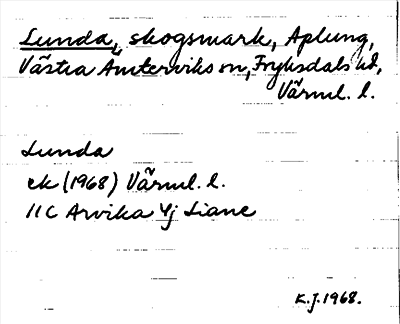 Lunda, skogsmark, Aplung,
Västra Ämterviks sn, Fryksdals hd,
Värml. l.
Lunda
ek (1968) Värml. l.
11C Arvika 4j Liane
K.J. 1968.